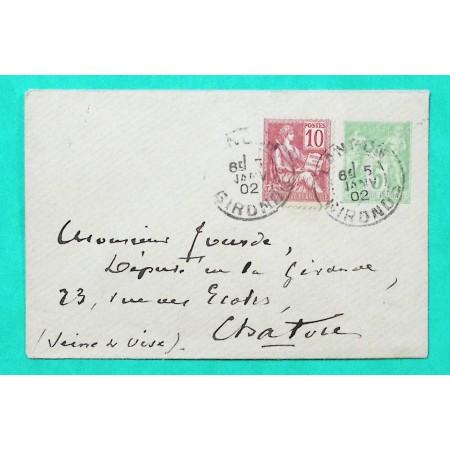 POSTES
10
LANGON
6E 5
JANV
02
GIRONDE
5
Monsieur Jourde,
Député de la Gironde,
23, rue des Ecoles,
Chatou
(Seine & Oise).